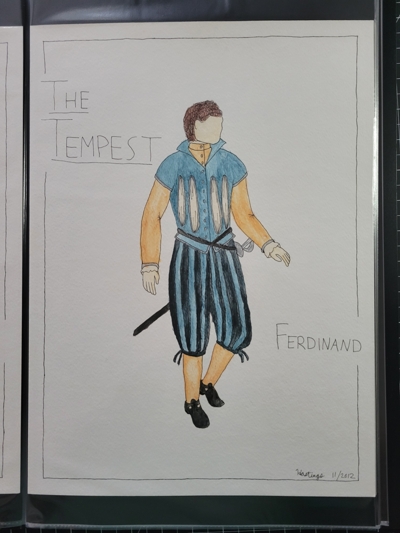 THE
TEMPEST
FERDINAND
Hastings 11/2012